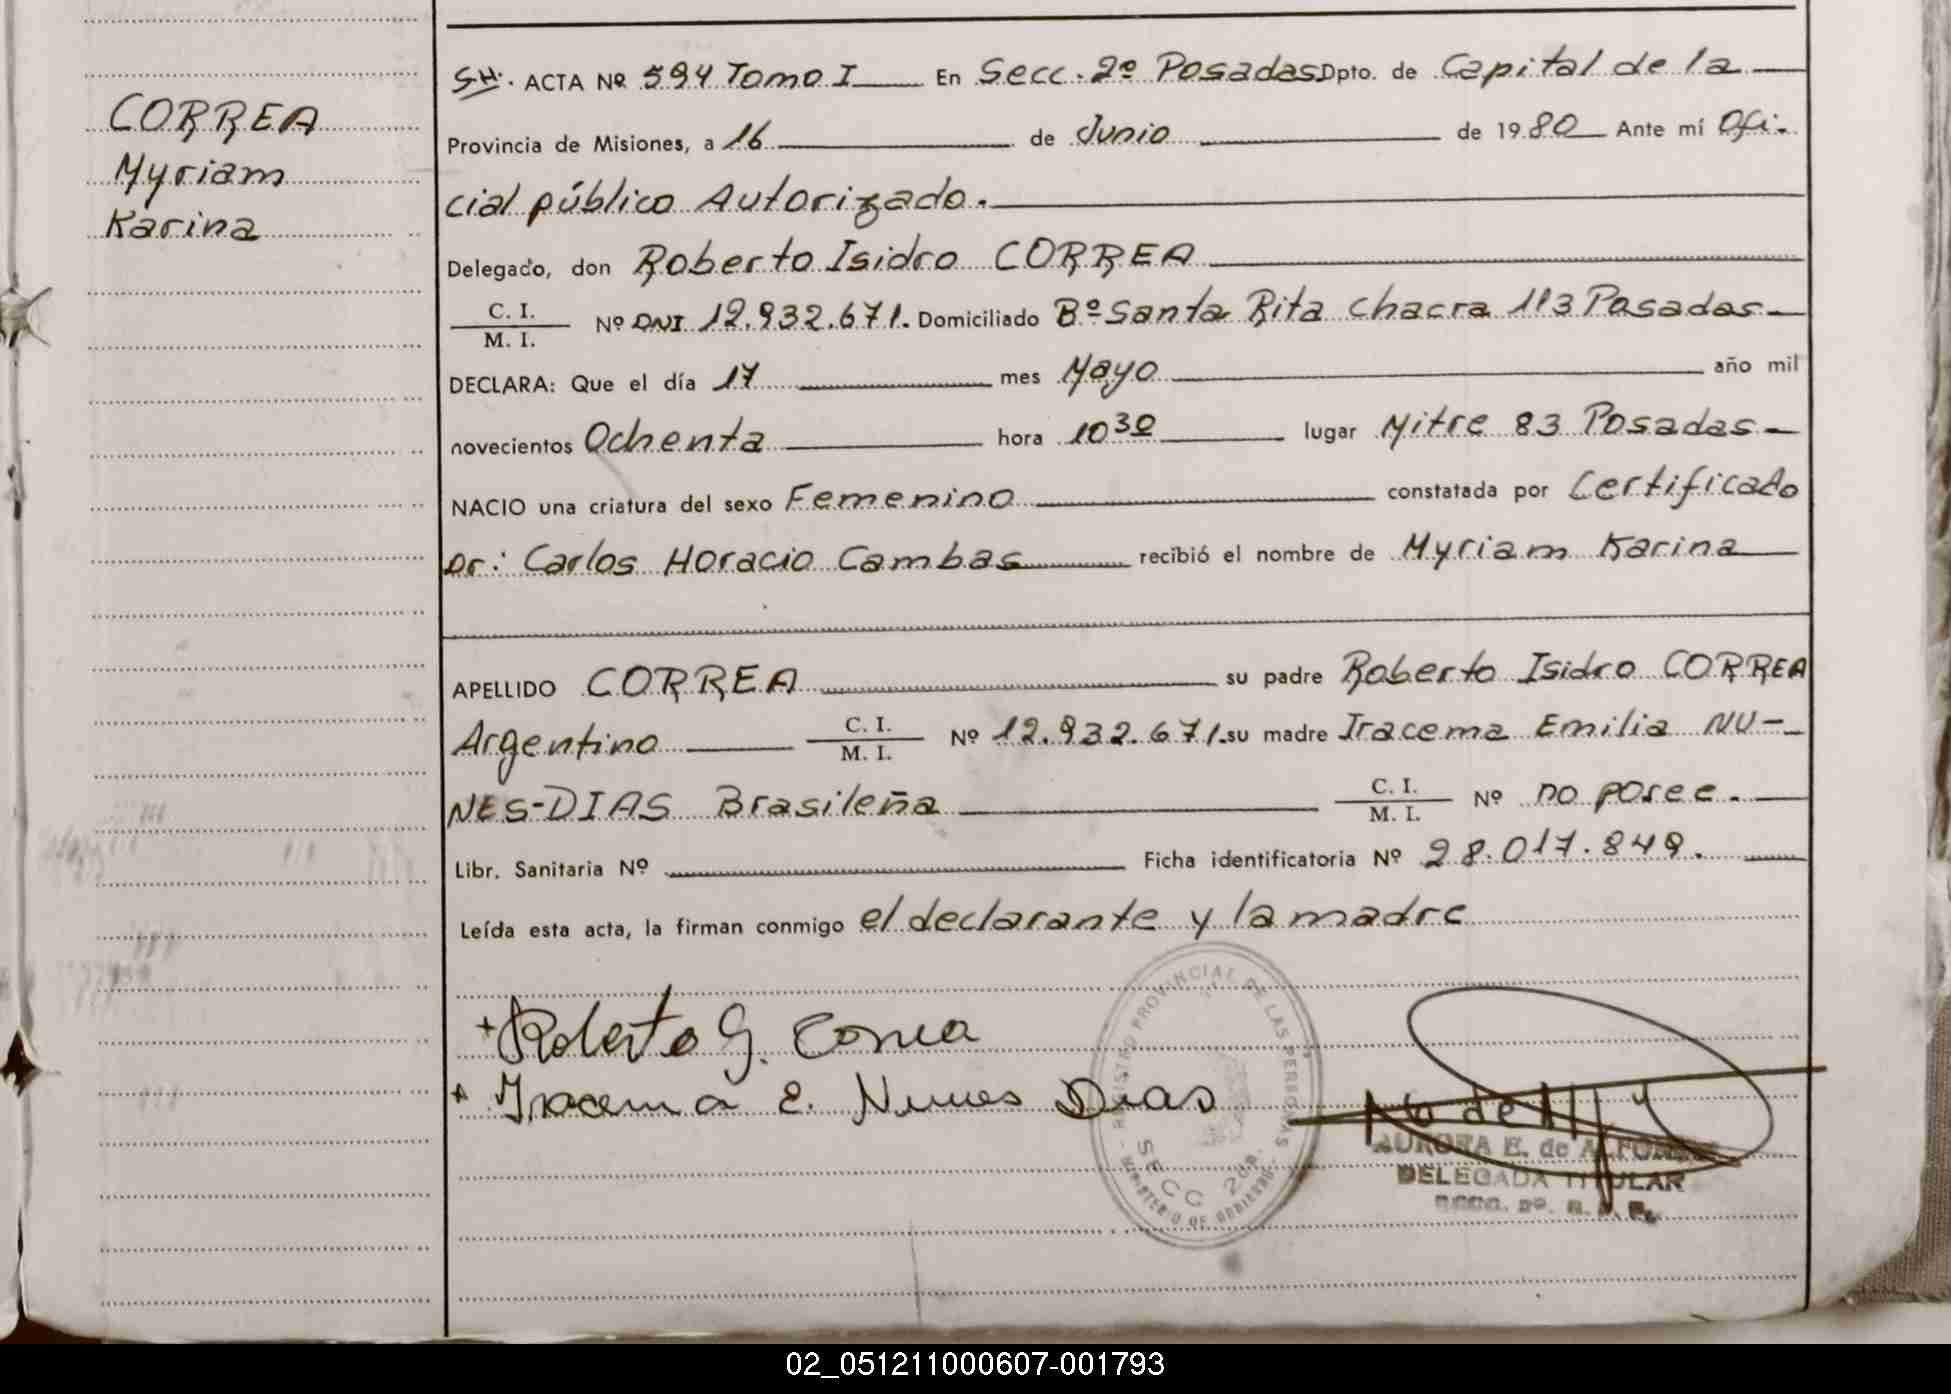 CORREA
Myriam
Karina
S.H. ACTA Nº 594 Tomo I En Secc. 2º Posadas Dpto. de Capital de la
Provincia de Misiones, a 16 de Junio de 1980 Ante mí Ofi-
cial público Autorizado.
Delegado, don Roberto Isidro CORREA
C. I.
M. I.
Nº DNI 12.932.671. Domiciliado Bº Santa Rita Chacra 113 Posadas
DECLARA: Que el día 17 mes Mayo año mil
novecientos Ochenta hora 10 30 lugar Mitre 83 Posadas
NACIO una criatura del sexo Femenino constatada por Certificado
Dr: Carlos Horacio Cambas recibió el nombre de Myriam Karina
APELLIDO CORREA su padre Roberto Isidro CORREA
Argentino C. I. M. I. Nº 12.932.671. su madre Iracema Emilia NU-
NES-DIAS Brasileña C. I. M. I. Nº no posee.
Libr. Sanitaria Nº Ficha identificatoria Nº 28.017.849.
Leída esta acta, la firman conmigo el declarante y la madre
Roberto Correa
Iracema E. Nunes Dias
REGISTRO PROVINCIAL DE LAS PERSONAS
SECC 2da.
MINISTERIO DE GOBIERNO
AURORA E. de
DELEGADA TITULAR
02_051211000607-001793